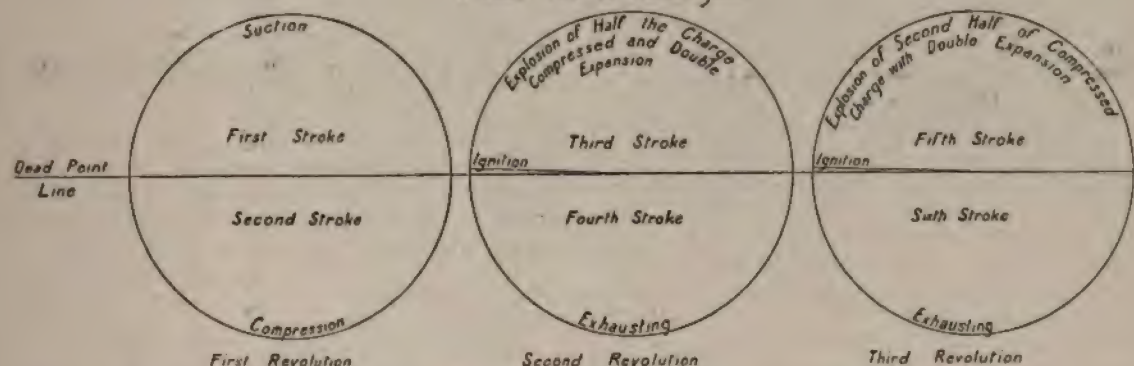 Suction
First Stroke
Dead Point
Line
Second Stroke
Compression
First Revolution
Explosion of Half the Charge
Compressed and Double
Expansion
Ignition
Third Stroke
Fourth Stroke
Exhausting
Second Revolution
Explosion of Second Half of Compressed
Charge with Double Expansion
Ignition
Fifth Stroke
Sixth Stroke
Exhausting
Third Revolution